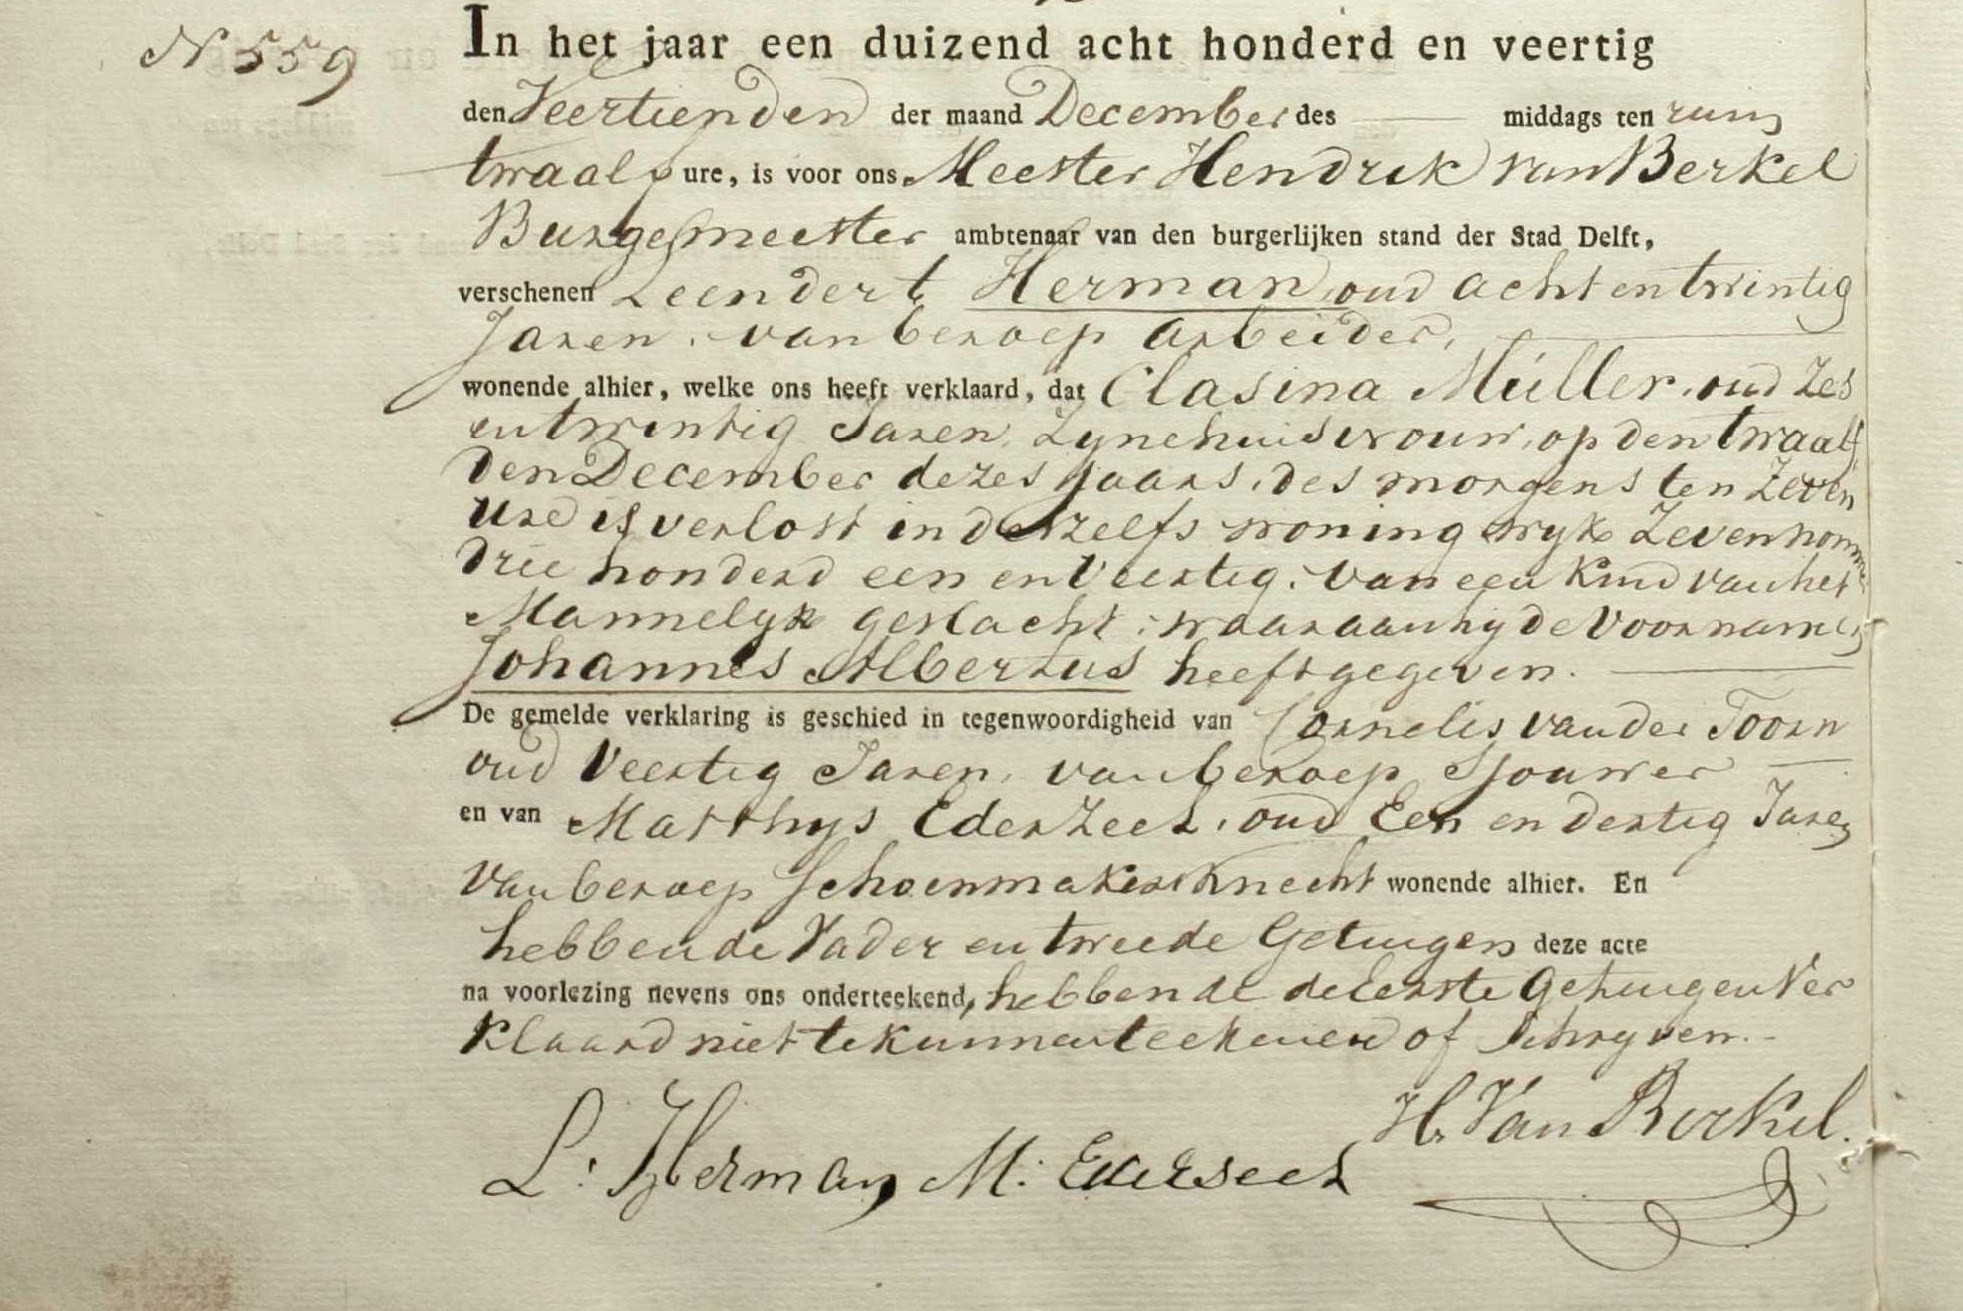 N 559
In het jaar een duizend acht honderd en veertig
den Veertienden der maand December des middags ten ruim
twaalf ure, is voor ons Meester Hendrik van Berkel
Burgemeester ambtenaar van den burgerlijken stand der Stad Delft,
verschenen Leendert Herman, oud acht en twintig
Jaren, van beroep arbeider,
wonende alhier, welke ons heeft verklaard, dat Clasina Müller, oud Zes
en twintig Jaren, Zyne huisvrouw, op den twaalf
den December dezes Jaars, des morgens ten Zeven
Ure is verlost in deszelfs woning wyk Zeven nom̄
drie honderd een en Veertig, van een Kind van het
Mannelyk geslacht, waaraan hij de Voornamen
Johannes Albertus heeft gegeven.
De gemelde verklaring is geschied in tegenwoordigheid van Cornelis van der Toorn
oud Veertig Jaren, van beroep Sjouwer
en van Matthys Ederzeel, oud Een en dertig Jaren
van beroep Schoenmakersknecht wonende alhier. En
hebbende Vader en tweede Getuigen deze acte
na voorlezing nevens ons onderteekend, hebbende de Eerste Getuigen Ver
klaard niet te kunnen teekenen of Schryven.
H. Van Berkel.
L. Herman M. Ederseel